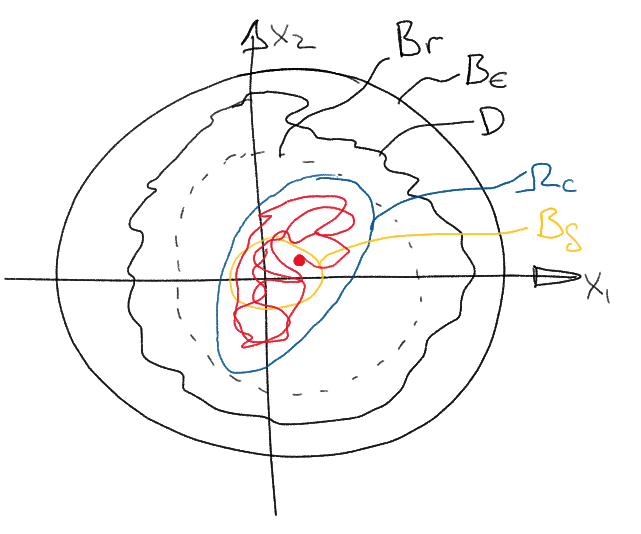 X₂
Br
Bϵ
D
Ωc
Bδ
X₁